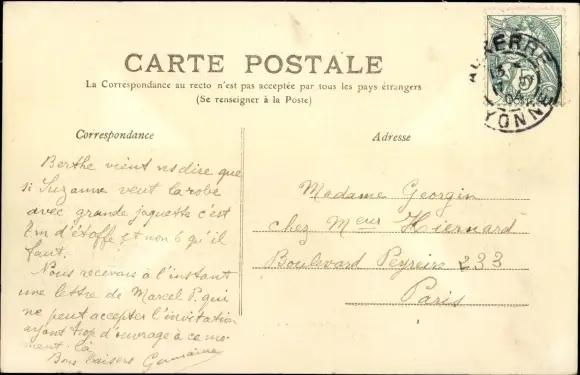 CARTE POSTALE
La Correspondance au recto n'est pas acceptée par tous les pays étrangers
(Se renseigner à la Poste)
Correspondance
Adresse
AUXERRE
YONNE
Berthe vient vs dire que
si Suzanne veut la robe
avec grande jaquette c'est
7m d'étoffe et non 6 qu'il
faut.
Nous recevons à l'instant
une lettre de Marcel P. qui
ne peut accepter l'invitation
ayant trop d'ouvrage à ce mo-
ment-là
Bons baisers Germaine
Madame Georgin
chez Meur Hiernard
Boulevard Pereire 233
Paris